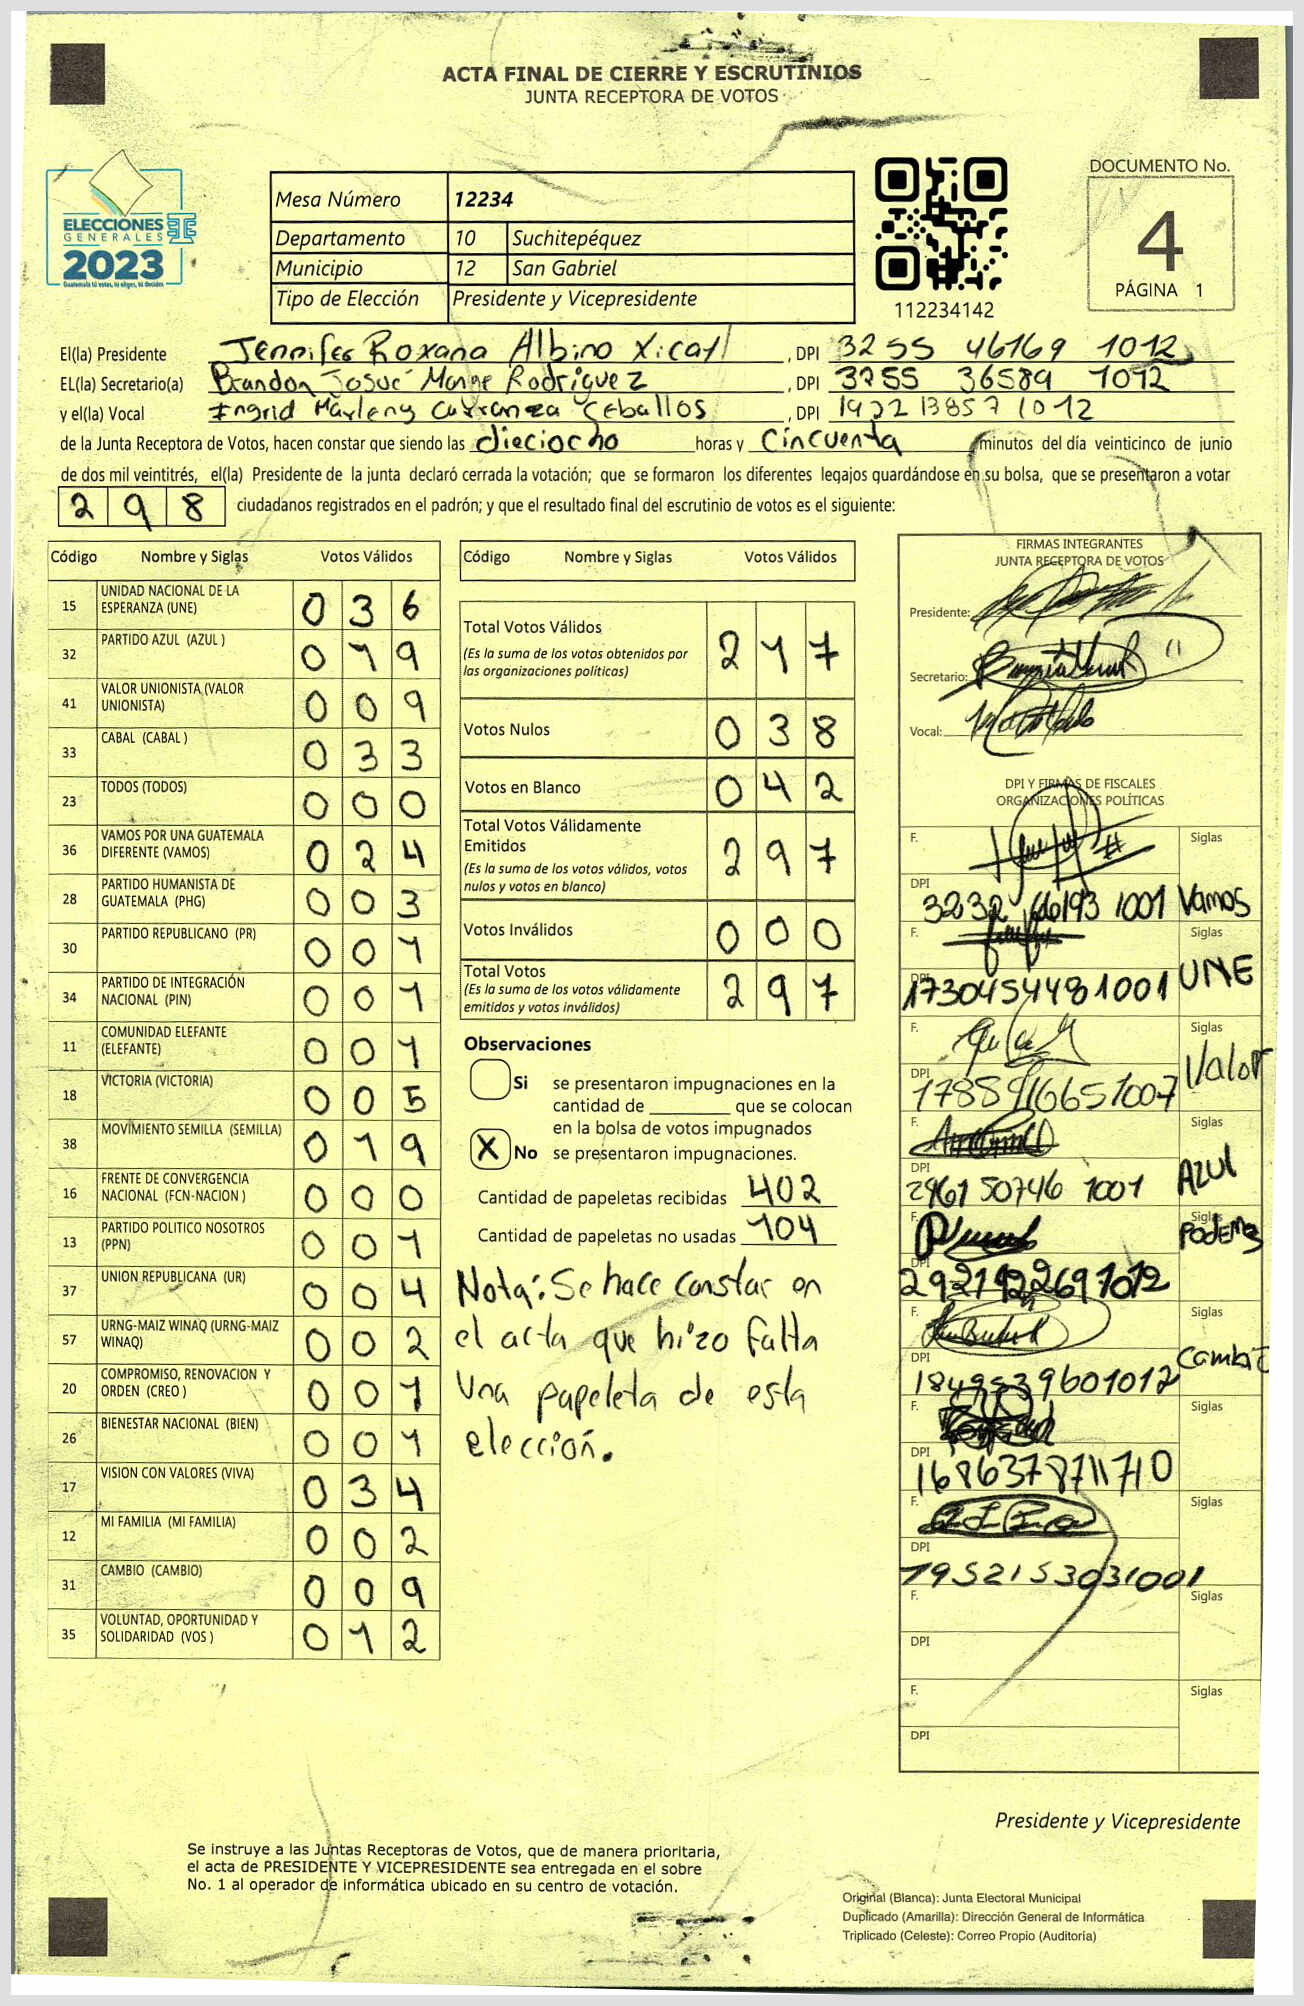 ACTA FINAL DE CIERRE Y ESCRUTINIOS
JUNTA RECEPTORA DE VOTOS
ELECCIONES
GENERALES
2023
Guatemala tú votas, tú eliges, tú decides
Mesa Número 12234
Departamento 10 Suchitepéquez
Municipio 12 San Gabriel
Tipo de Elección Presidente y Vicepresidente
112234142
DOCUMENTO No.
4
PÁGINA 1
El(la) Presidente Jennifer Roxana Albino Xicay , DPI 3255 46169 1012
EL(la) Secretario(a) Brandon Josué Monge Rodríguez , DPI 3255 36589 1012
y el(la) Vocal Ingrid Mayleny Carranza Ceballos , DPI 1922 13857 1012
de la Junta Receptora de Votos, hacen constar que siendo las dieciocho horas y cincuenta minutos del día veinticinco de junio
de dos mil veintitrés, el(la) Presidente de la junta declaró cerrada la votación; que se formaron los diferentes legajos quardándose en su bolsa, que se presentaron a votar
298 ciudadanos registrados en el padrón; y que el resultado final del escrutinio de votos es el siguiente:
Código Nombre y Siglas Votos Válidos
15 UNIDAD NACIONAL DE LA ESPERANZA (UNE) 036
32 PARTIDO AZUL (AZUL ) 019
41 VALOR UNIONISTA (VALOR UNIONISTA) 009
33 CABAL (CABAL ) 033
23 TODOS (TODOS) 000
36 VAMOS POR UNA GUATEMALA DIFERENTE (VAMOS) 024
28 PARTIDO HUMANISTA DE GUATEMALA (PHG) 003
30 PARTIDO REPUBLICANO (PR) 001
34 PARTIDO DE INTEGRACIÓN NACIONAL (PIN) 001
11 COMUNIDAD ELEFANTE (ELEFANTE) 001
18 VICTORIA (VICTORIA) 005
38 MOVIMIENTO SEMILLA (SEMILLA) 019
16 FRENTE DE CONVERGENCIA NACIONAL (FCN-NACION ) 000
13 PARTIDO POLITICO NOSOTROS (PPN) 001
37 UNION REPUBLICANA (UR) 004
57 URNG-MAIZ WINAQ (URNG-MAIZ WINAQ) 002
20 COMPROMISO, RENOVACION Y ORDEN (CREO ) 001
26 BIENESTAR NACIONAL (BIEN) 001
17 VISION CON VALORES (VIVA) 034
12 MI FAMILIA (MI FAMILIA) 002
31 CAMBIO (CAMBIO) 009
35 VOLUNTAD, OPORTUNIDAD Y SOLIDARIDAD (VOS ) 012
Código Nombre y Siglas Votos Válidos
Total Votos Válidos 217
(Es la suma de los votos obtenidos por
las organizaciones políticas)
Votos Nulos 038
Votos en Blanco 042
Total Votos Válidamente
Emitidos 297
(Es la suma de los votos válidos, votos
nulos y votos en blanco)
Votos Inválidos 000
Total Votos 297
(Es la suma de los votos válidamente
emitidos y votos inválidos)
Observaciones
Si se presentaron impugnaciones en la
cantidad de ________ que se colocan
en la bolsa de votos impugnados
X No se presentaron impugnaciones.
Cantidad de papeletas recibidas 402
Cantidad de papeletas no usadas 104
Nota: Se hace constar en
el acta que hizo falta
una papeleta de esta
elección.
FIRMAS INTEGRANTES
JUNTA RECEPTORA DE VOTOS
Presidente:
Secretario:
Vocal:
DPI Y FIRMAS DE FISCALES
ORGANIZACIONES POLÍTICAS
F. Siglas
DPI 3232 66193 1001 Vamos
F. Siglas
DPI 1730454481001 UNE
F. Siglas
DPI Valor
F. Siglas
DPI 2961 50746 1001 AZUL
F. Siglas
DPI Podemos
F. Siglas
DPI Cambio
F. Siglas
DPI
F. Siglas
DPI 1952153031001
F. Siglas
DPI
F. Siglas
DPI
Presidente y Vicepresidente
Se instruye a las Juntas Receptoras de Votos, que de manera prioritaria,
el acta de PRESIDENTE Y VICEPRESIDENTE sea entregada en el sobre
No. 1 al operador de informática ubicado en su centro de votación.
Original (Blanca): Junta Electoral Municipal
Duplicado (Amarilla): Dirección General de Informática
Triplicado (Celeste): Correo Propio (Auditoría)